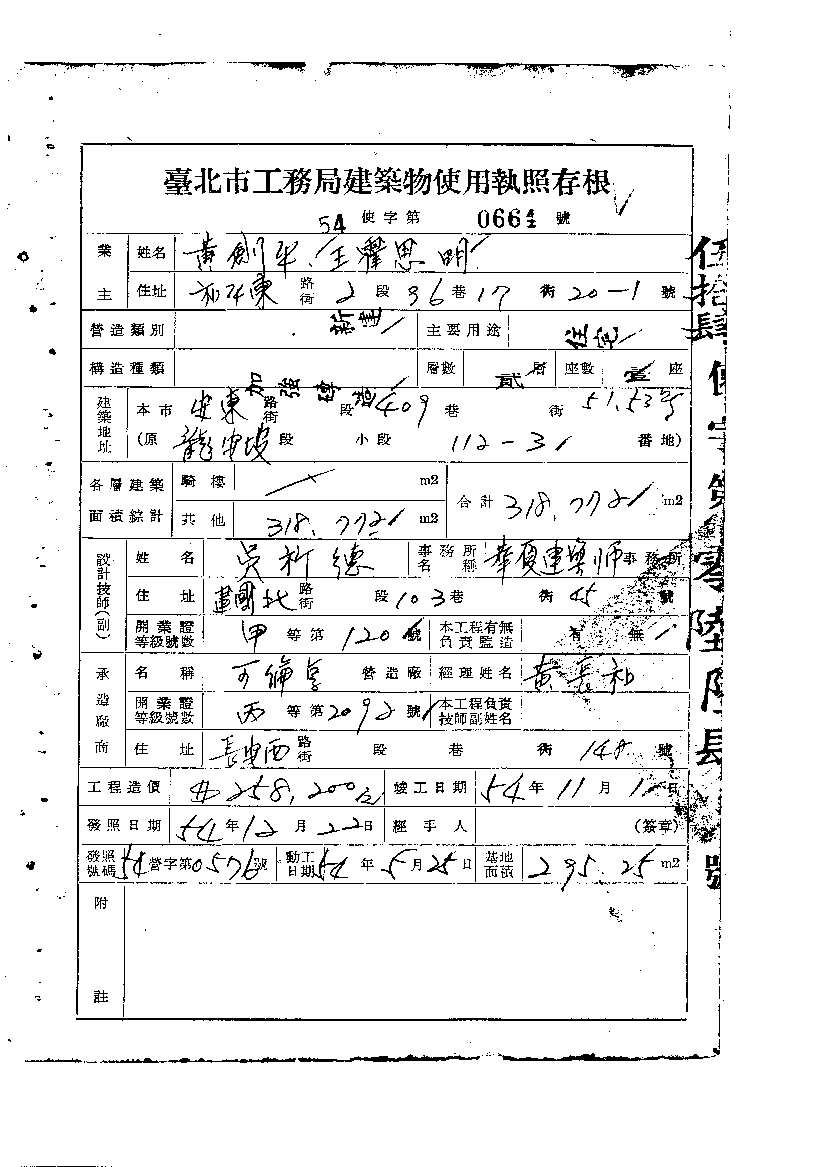 臺北市工務局建築物使用執照存根
54 使字第 0664 號
業主 姓名 黃劍平 王 思明
住址 和平東 路街 2 段 36 巷 17 街 20-1 號
營造類別 新建 主要用途 住宅
構造種類 加強磚造 層數 貳 層 座數 壹 座
建築地址 本市 安東 路街 段 409 巷 街 51.53號
(原 龍安坡 段 小段 112-31 番地)
各層建築面積綜計 騎樓 m2 合計 318.772 m2
其他 318.772 m2
設計技師(副) 姓名 吳 德 事務所名稱 華廈建築師 事務所
住址 建國北 路街 段 103 巷 街 45 號
開業證等級號數 甲 等第 120 號 本工程有無負責監造 有 無
承造廠商 名稱 營造廠 經理姓名 黃 和
開業證等級號數 丙 等第 2092 號 本工程負責技師副姓名
住址 長安西 路街 段 巷 街 148 號
工程造價 258,200 竣工日期 54 年 11 月 1 日
發照日期 54 年 12 月 22 日 經手人 (簽章)
發照號碼 54 營字第 0576 號 動工日期 54 年 5 月 25 日 基地面積 295.25 m2
附註
伍拾肆 使字第 零陸陸肆 號